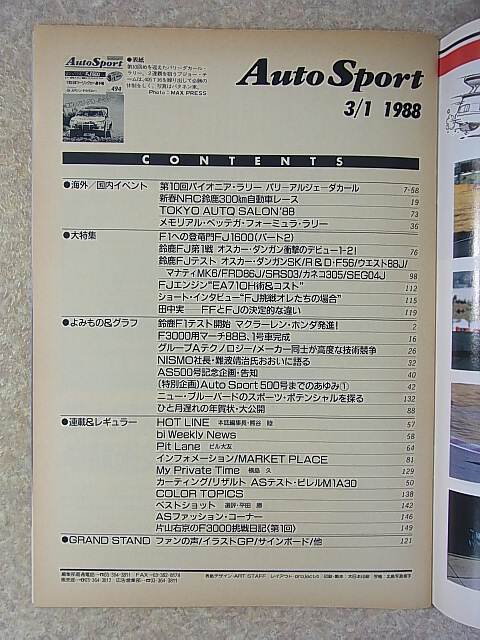 Auto Sport
494
●表紙
第10回めを迎えたパリ〜ダカール・
ラリー。2連覇を狙うプジョー・チ
ームは、405 T16を繰り出して必勝の
体制をしく。写真はバタネン車。
Photo：MAX PRESS
Auto Sport
3/1 1988
CONTENTS
●海外／国内イベント 第10回パイオニア・ラリー パリ〜アルジェ〜ダカール 7・58
新春NRC鈴鹿300km自動車レース 19
TOKYO AUTO SALON '88 73
メモリアル・ベッテガ・フォーミュラ・ラリー 36
●大特集 F1への登竜門FJ1600(パート2)
鈴鹿FJ第1戦 オスカー・ダンガン衝撃のデビュー1-2! 76
鈴鹿FJテスト オスカー・ダンガンSK/R&D・F56/ウエスト88J/
マナティMK6/FRD86J/SRS03/カネコ305/SEG04J 98
FJエンジン"EA710H術&コスト" 112
ショート・インタビュー"FJ挑戦オレたちの場合" 115
田中実 FFとFJの決定的な違い 119
●よみもの&グラフ 鈴鹿F1テスト開始 マクラーレン・ホンダ発進! 2
F3000用マーチ88B、1号車完成 16
グループAテクノロジー/メーカー同士が高度な技術競争 26
NISMO社長・難波靖治氏おおいに語る 32
AS500号記念企画・告知 40
(特別企画)Auto Sport 500号までのあゆみ① 42
ニュー・ブルーバードのスポーツ・ポテンシャルを探る 132
ひと月遅れの年賀状・大公開 88
●連載&レギュラー HOT LINE 本誌編集長・熊谷 睦 57
bi Weekly News 58
Pit Lane ビル大友 64
インフォメーション/MARKET PLACE 81
My Private Time 横島 久 129
カーティング/リザルト ASテスト・ビレルM1A30 50
COLOR TOPICS 138
ベストショット 選評・平田 勝 142
ASファッション・コーナー 146
片山右京のF3000挑戦日記〈第1回〉 149
●GRAND STAND ファンの声/イラストGP/サインボード/他 121